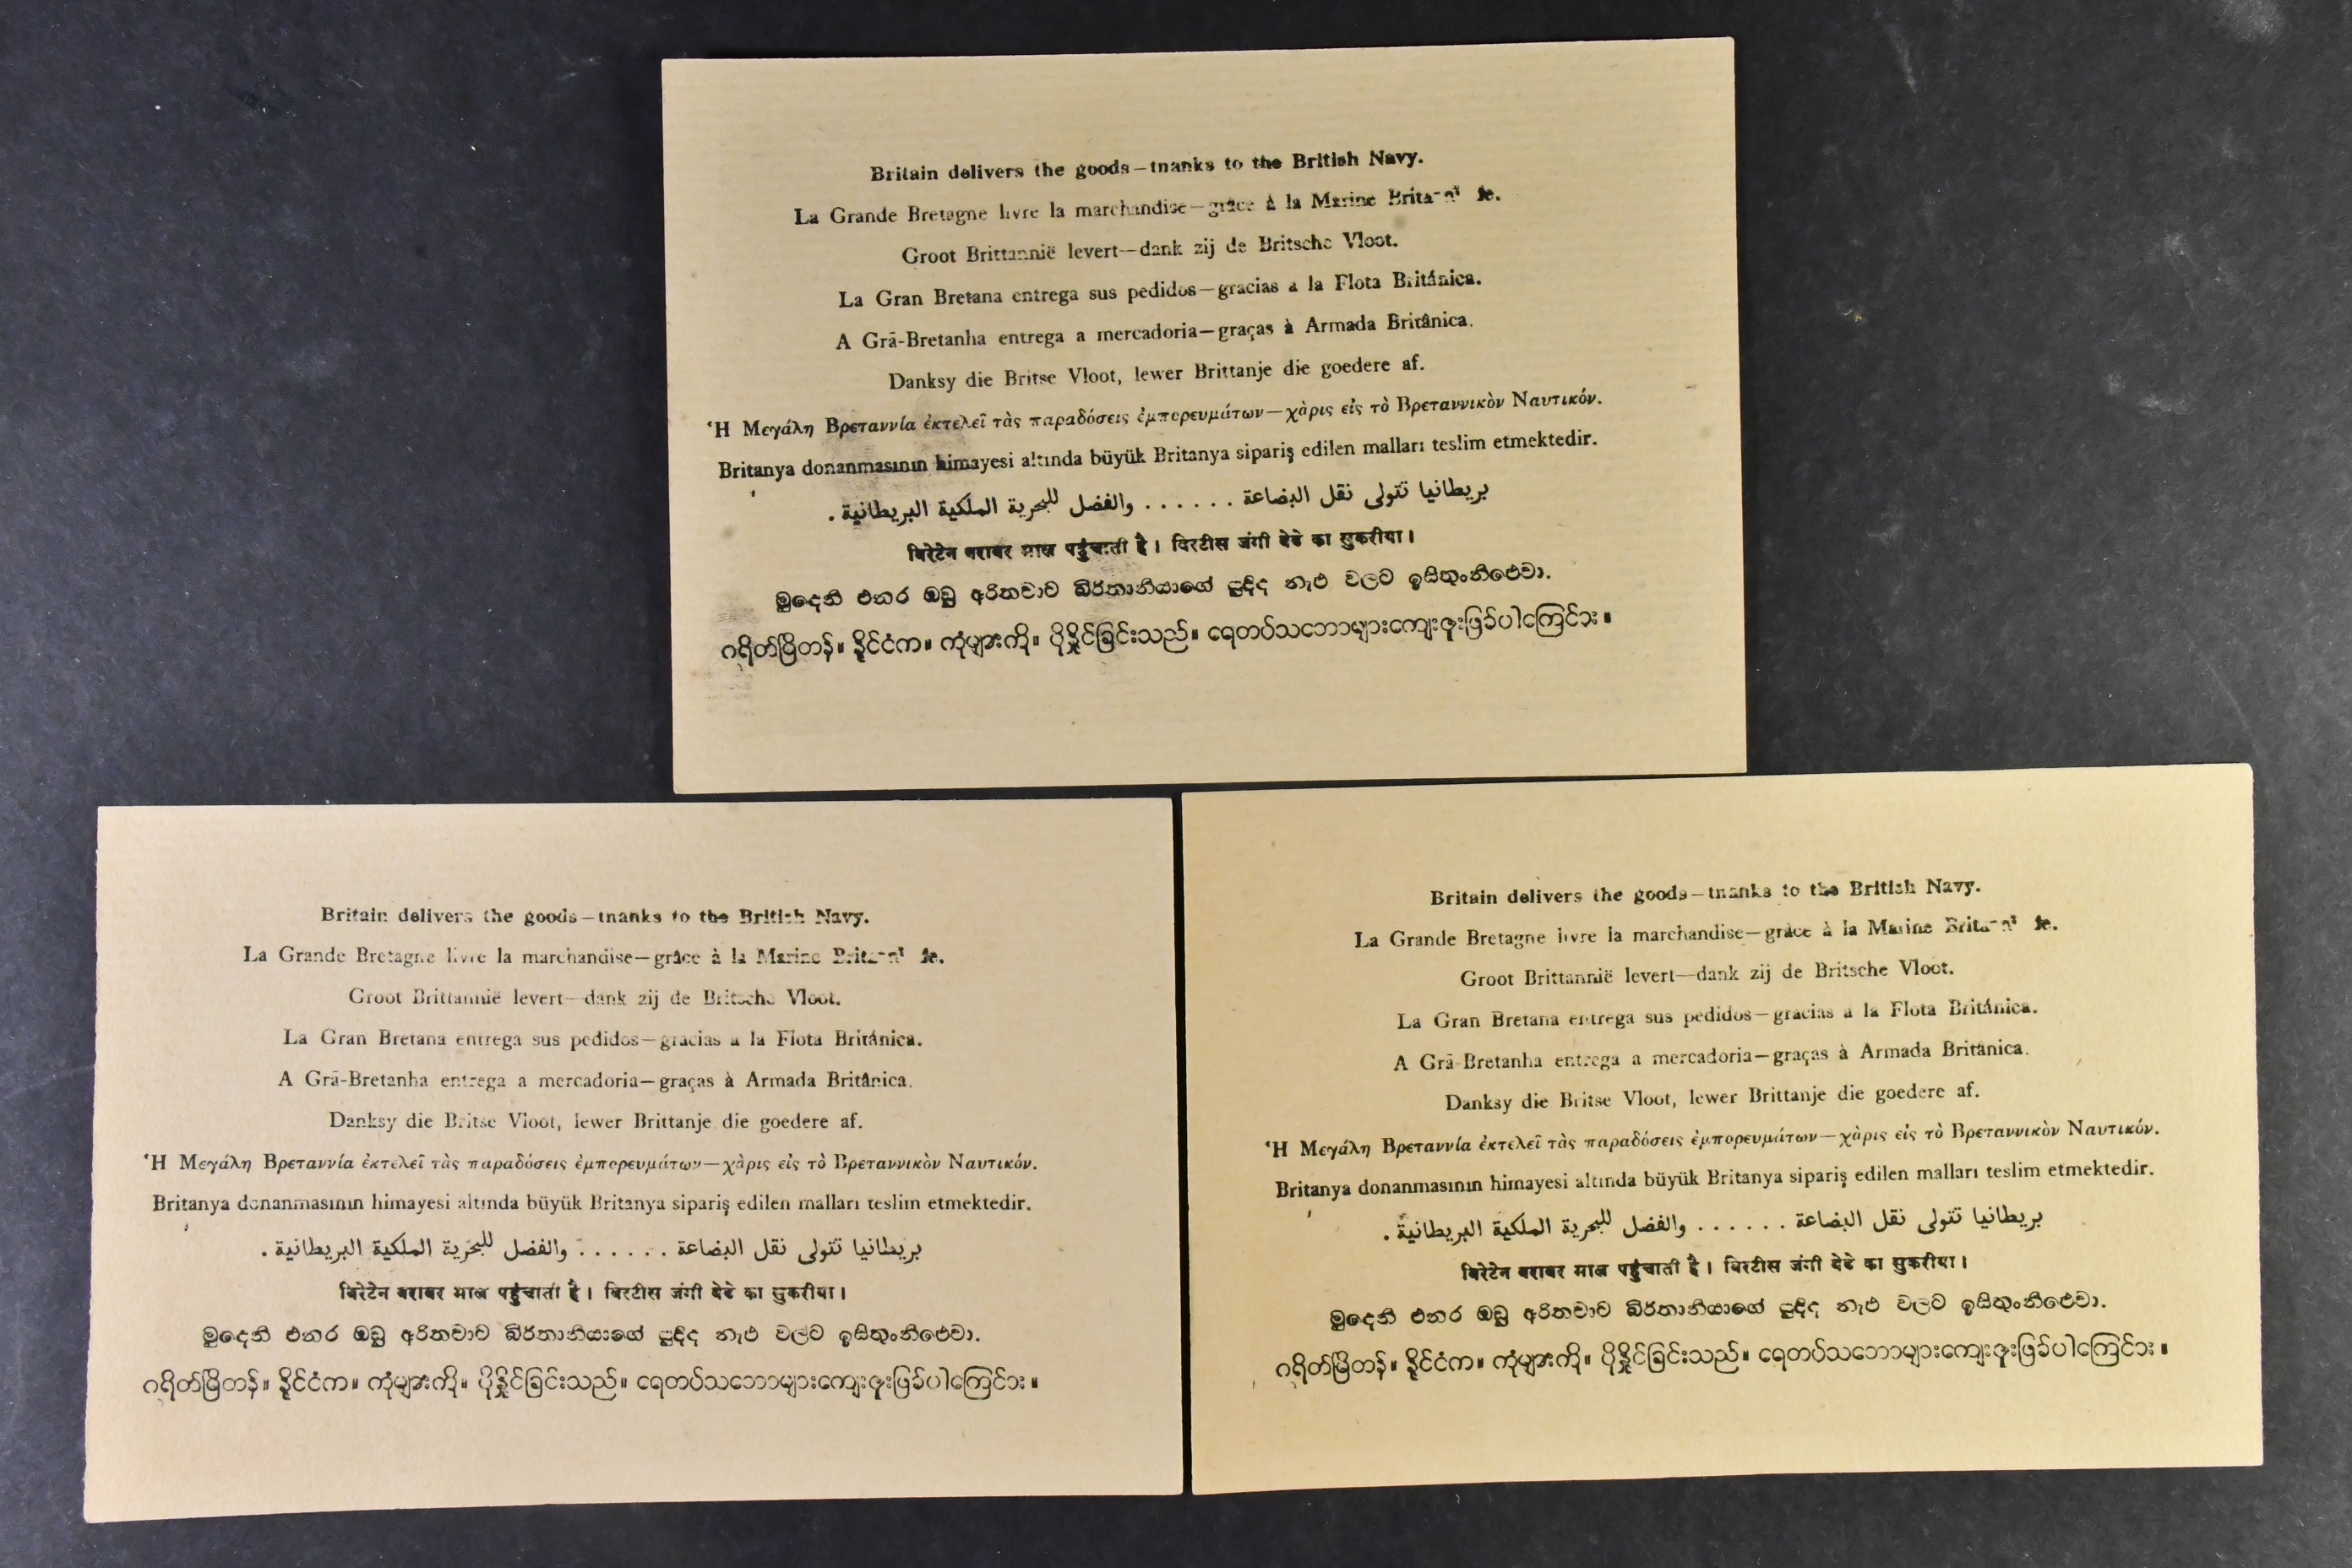 Britain delivers the goods—tnanks to the British Navy.
La Grande Bretagne livre la marchandise—grâce à la Marine
Groot Brittannië levert—dank zij de Britsche Vloot.
La Gran Bretana entrega sus pedidos—gracias a la Flota Británica.
A Grã-Bretanha entrega a mercadoria—graças à Armada Britânica.
Danksy die Britse Vloot, lewer Brittanje die goedere af.
Ἡ Μεγάλη Βρεταννία ἐκτελεῖ τὰς παραδόσεις ἐμπορευμάτων—χὰρις εἰς τὸ Βρεταννικὸν Ναυτικόν.
Britanya donanmasının himayesi altında büyük Britanya sipariş edilen malları teslim etmektedir.
بريطانيا تتولى نقل البضاعة . . . . . . والفضل للبحرية الملكية البريطانية .
बिरेटेन बराबर माल पहुंचाती है। बिरटीस जंगी बेडे का सुकरीया।
මුදෙනි එනර ඔබු අරිතවාට බ්රිතානියාගේ නැව් වලට
ဂရိတ်ဗြိတန်။ နိုင်ငံက။ ကုံများကို။ ပို့နိုင်ခြင်းသည်။ ရေတပ်သဘောများကျေးဇူးဖြစ်ပါကြောင်း။
Britain delivers the goods—tnanks to the British Navy.
La Grande Bretagne livre la marchandise—grâce à la Marine
Groot Brittannië levert—dank zij de Britsche Vloot.
La Gran Bretana entrega sus pedidos—gracias a la Flota Británica.
A Grã-Bretanha entrega a mercadoria—graças à Armada Britânica.
Danksy die Britse Vloot, lewer Brittanje die goedere af.
Ἡ Μεγάλη Βρεταννία ἐκτελεῖ τὰς παραδόσεις ἐμπορευμάτων—χὰρις εἰς τὸ Βρεταννικὸν Ναυτικόν.
Britanya donanmasının himayesi altında büyük Britanya sipariş edilen malları teslim etmektedir.
بريطانيا تتولى نقل البضاعة . . . . . . والفضل للبحرية الملكية البريطانية .
बिरेटेन बराबर माल पहुंचाती है। बिरटीस जंगी बेडे का सुकरीया।
මුදෙනි එනර ඔබු අරිතවාට බ්රිතානියාගේ නැව් වලට
ဂရိတ်ဗြိတန်။ နိုင်ငံက။ ကုံများကို။ ပို့နိုင်ခြင်းသည်။ ရေတပ်သဘောများကျေးဇူးဖြစ်ပါကြောင်း။
Britain delivers the goods—tnanks to the British Navy.
La Grande Bretagne livre la marchandise—grâce à la Marine
Groot Brittannië levert—dank zij de Britsche Vloot.
La Gran Bretana entrega sus pedidos—gracias a la Flota Británica.
A Grã-Bretanha entrega a mercadoria—graças à Armada Britânica.
Danksy die Britse Vloot, lewer Brittanje die goedere af.
Ἡ Μεγάλη Βρεταννία ἐκτελεῖ τὰς παραδόσεις ἐμπορευμάτων—χὰρις εἰς τὸ Βρεταννικὸν Ναυτικόν.
Britanya donanmasının himayesi altında büyük Britanya sipariş edilen malları teslim etmektedir.
بريطانيا تتولى نقل البضاعة . . . . . . والفضل للبحرية الملكية البريطانية .
बिरेटेन बराबर माल पहुंचाती है। बिरटीस जंगी बेडे का सुकरीया।
මුදෙනි එනර ඔබු අරිතවාට බ්රිතානියාගේ නැව් වලට
ဂရိတ်ဗြိတန်။ နိုင်ငံက။ ကုံများကို။ ပို့နိုင်ခြင်းသည်။ ရေတပ်သဘောများကျေးဇူးဖြစ်ပါကြောင်း။